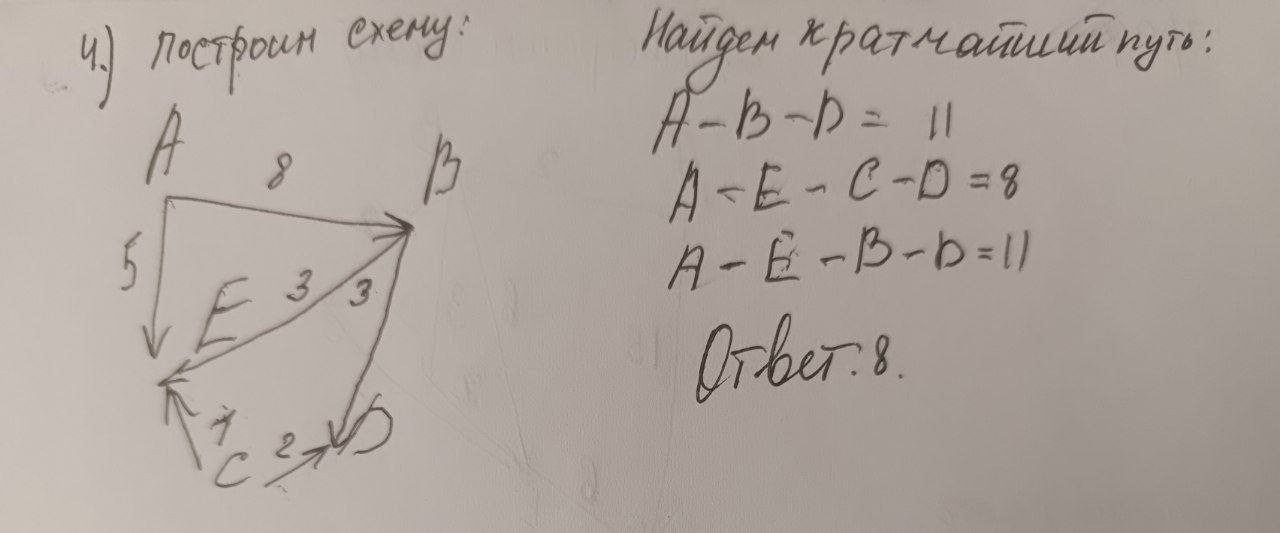 4.) Построим схему:
A
8
B
5
E
3
3
1
C
2
D
Найдем кратчайший путь:
A - B - D = 11
A - E - C - D = 8
A - E - B - D = 11
Ответ: 8.